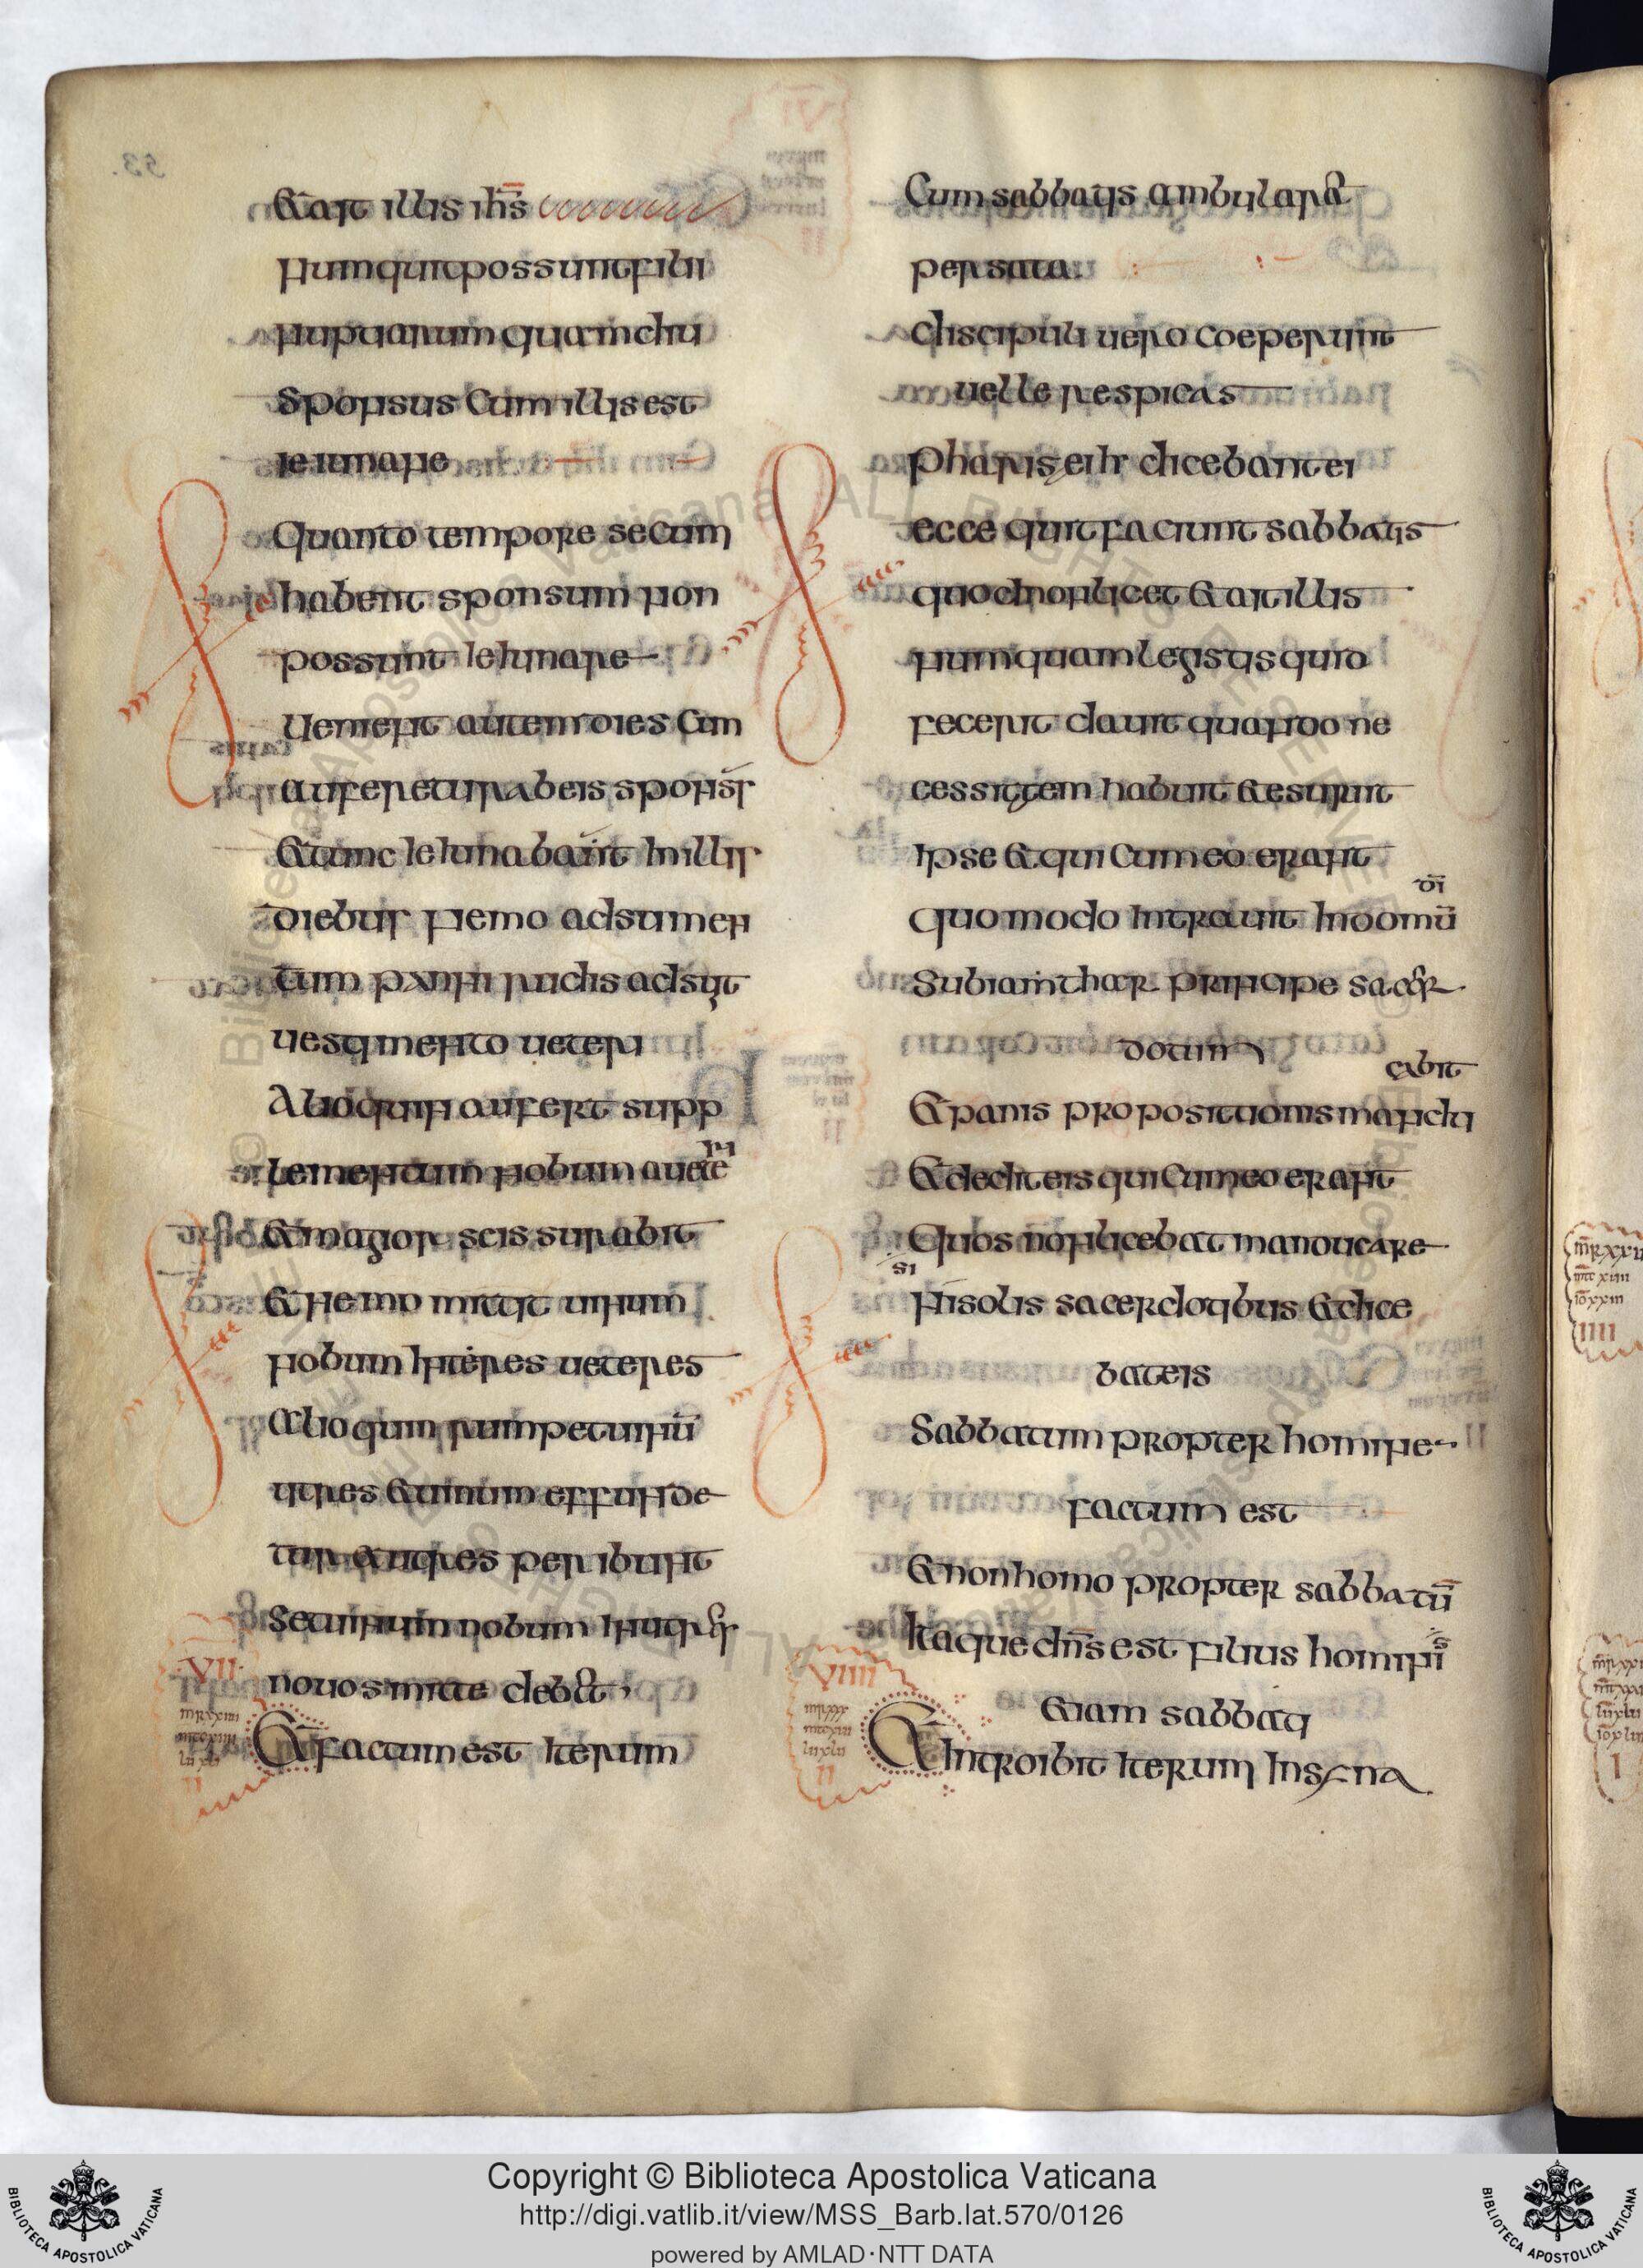 Et ait illis ihs
Numquit possunt filii
nuptiarum quamdiu
sponsus cum illis est
ieiunare
Quanto tempore secum
habent sponsum non
possunt ieiunare
Uenient autem dies cum
auferetur ab eis sponsr
Et tunc ieiunabant in illis
diebus Nemo adsumen
tum panni rudis adsuit
uestimento ueteri
Alioquin aufert supp
lementum nobum a uete
ri
Et magior scissura bit
Et nemo mittit uinum
nobum in utres ueteres
Alioquin rumpet uinu
utres et uinum effunde
tur et utres peribunt
Set uinum nobum in utres
nouos mitte debet
VII
mr xxiiii
Et factum est iterum
II
Cum sabbatis ambularet
per sata
discipuli uero coeperunt
uellere spicas
Pharisei dicebant ei
ecce quit faciunt sabbatis
quod non licet Et ait illis
numquam legistis quid
fecerit dauit quando ne
cessitatem habuit et esuriit
ipse et qui cum eo erant
di
Quomodo intrauit in domu
sub iamthar principe sacer
dotum
cabit
Et panis propositionis mandu
Et dedit eis qui cum eo erant
Quos non licebat manducare
si
ni solis sacerdotibus Et dice
bat eis
Sabbatum propter homine
factum est
Et non homo propter sabbatu
Itaque dns est filius homini
s
etiam sabbati
VIIII
mr xxv
Et introibit iterum in sina
II
Copyright © Biblioteca Apostolica Vaticana
http://digi.vatlib.it/view/MSS_Barb.lat.570/0126
powered by AMLAD·NTT DATA
BIBLIOTECA APOSTOLICA VATICANA
BIBLIOTECA APOSTOLICA VATICANA